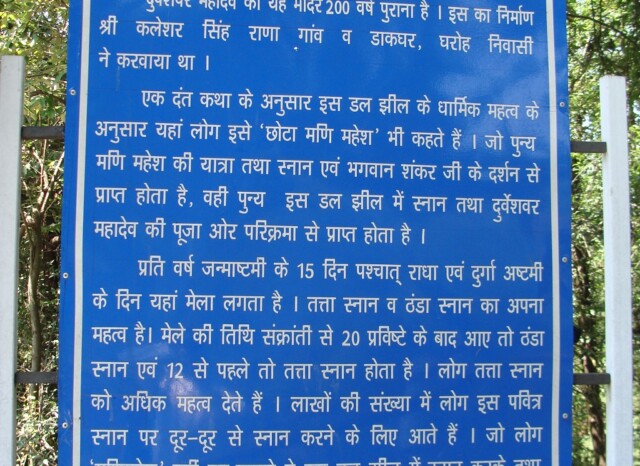 महादेव का यह मंदिर 200 वर्ष पुराना है । इस का निर्माण
श्री कलेशर सिंह राणा गांव व डाकघर, घरोह निवासी
ने करवाया था ।
एक दंत कथा के अनुसार इस डल झील के धार्मिक महत्व के
अनुसार यहां लोग इसे ‘छोटा मणि महेश’ भी कहते हैं । जो पुन्य
मणि महेश की यात्रा तथा स्नान एवं भगवान शंकर जी के दर्शन से
प्राप्त होता है, वही पुन्य इस डल झील में स्नान तथा दुर्वेशवर
महादेव की पूजा ओर परिक्रमा से प्राप्त होता है ।
प्रति वर्ष जन्माष्टमी के 15 दिन पश्चात् राधा एवं दुर्गा अष्टमी
के दिन यहां मेला लगता है । तत्ता स्नान व ठंडा स्नान का अपना
महत्व है। मेले की तिथि संक्रांती से 20 प्रविष्टे के बाद आए तो ठंडा
स्नान एवं 12 से पहले तो तत्ता स्नान होता है । लोग तत्ता स्नान
को अधिक महत्व देते हैं । लाखों की संख्या में लोग इस पवित्र
स्नान पर दूर-दूर से स्नान करने के लिए आते हैं । जो लोग